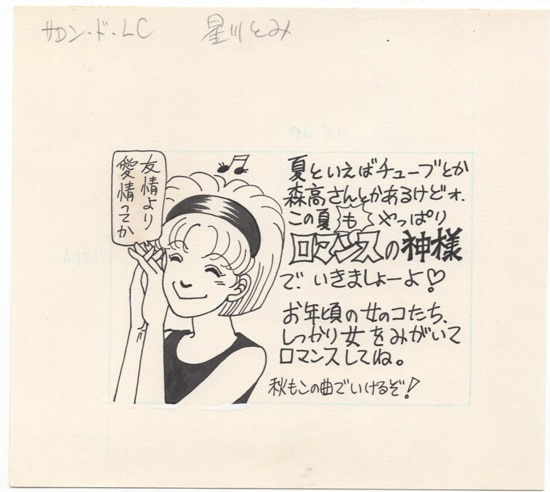 サロン・ド・LC 星川とみ
友情より
愛情ってか
夏といえばチューブとか
森高さんとかあるけどォ、
この夏も やっぱり
ロマンスの神様
で いきましょーよ♡
お年頃の女のコたち、
しっかり女をみがいて
ロマンスしてね。
秋もこの曲でいけるぞ!